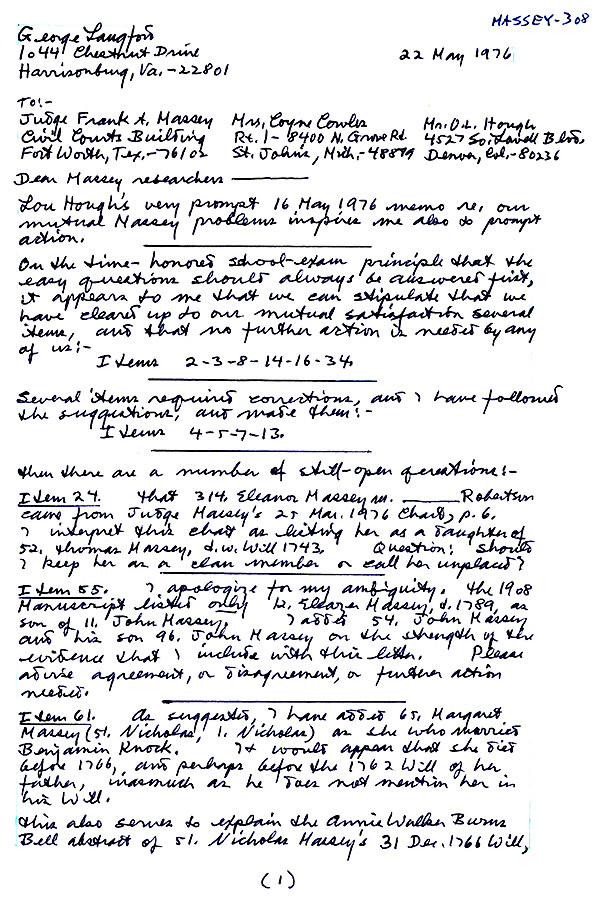 MASSEY-308
George Langford
1044 Chestnut Drive
Harrisonburg, Va.-22801
22 May 1976
To:-
Judge Frank A. Massey
Civil Courts Building
Fort Worth, Tex.-76102
Mrs. Coyne Cowles
Rt. 1- 8400 N. Grove Rd.
St. Johns, Mich.-48879
Mr. O.L. Hough
4527 So. Lowell Blvd.
Denver, Col.-80236
Dear Massey researchers
Lou Hough's very prompt 16 May 1976 memo re. our
mutual Massey problems inspires me also to prompt
action.
On the time-honored school-exam principle that the
easy questions should always be answered first,
it appears to me that we can stipulate that we
have cleared up to our mutual satisfaction several
items, and that no further action is needed by any
of us:-
Items 2-3-8-14-16-34.
Several items required corrections, and I have followed
the suggestions, and made them:-
Items 4-5-7-13.
Then there are a number of still-open questions:-
Item 24. That 314. Eleanor Massey m. ______ Robertson
came from Judge Massey's 25 Mar. 1976 Chart, p. 6.
I interpret this chart as listing her as a daughter of
52. Thomas Massey, d.w. Will 1743. Question: Should
I keep her as a clan member or call her unplaced?
Item 55. I apologize for my ambiguity. The 1908
Manuscript listed only 12. Eleazer Massey, d. 1789, as
son of 11. John Massey. I added 54. John Massey
and his son 96. John Massey on the strength of the
evidence that I include with this letter. Please
advise agreement, or disagreement, or further action
needed.
Item 61. As suggested, I have added 65. Margaret
Massey (51. Nicholas, 1. Nicholas) as she who married
Benjamin Knock. It would appear that she died
before 1766, and perhaps before the 1762 Will of her
father, inasmuch as he does not mention her in
his Will.
This also serves to explain the Annie Walker Burns
Bell abstract of 51. Nicholas Massey's 31 Dec. 1766 Will,
(1)